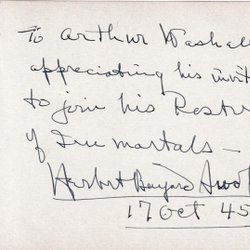 To Arthur Washal
appreciating his invit
to join his Rostr
of Immortals —
Herbert Bayard Swo
17 Oct 45